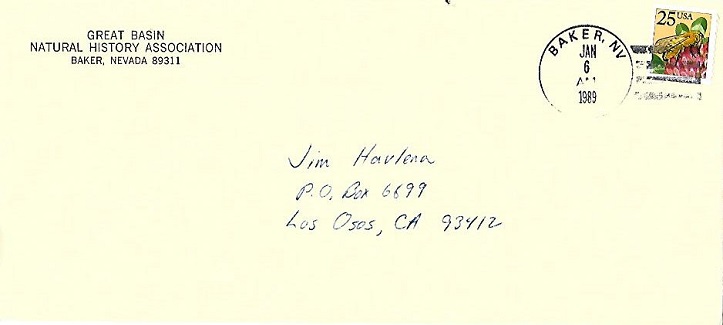 GREAT BASIN
NATURAL HISTORY ASSOCIATION
BAKER, NEVADA 89311
BAKER, NV
JAN
6
1989
25 USA
Jim Havlena
P.O. Box 6699
Los Osos, CA 93412